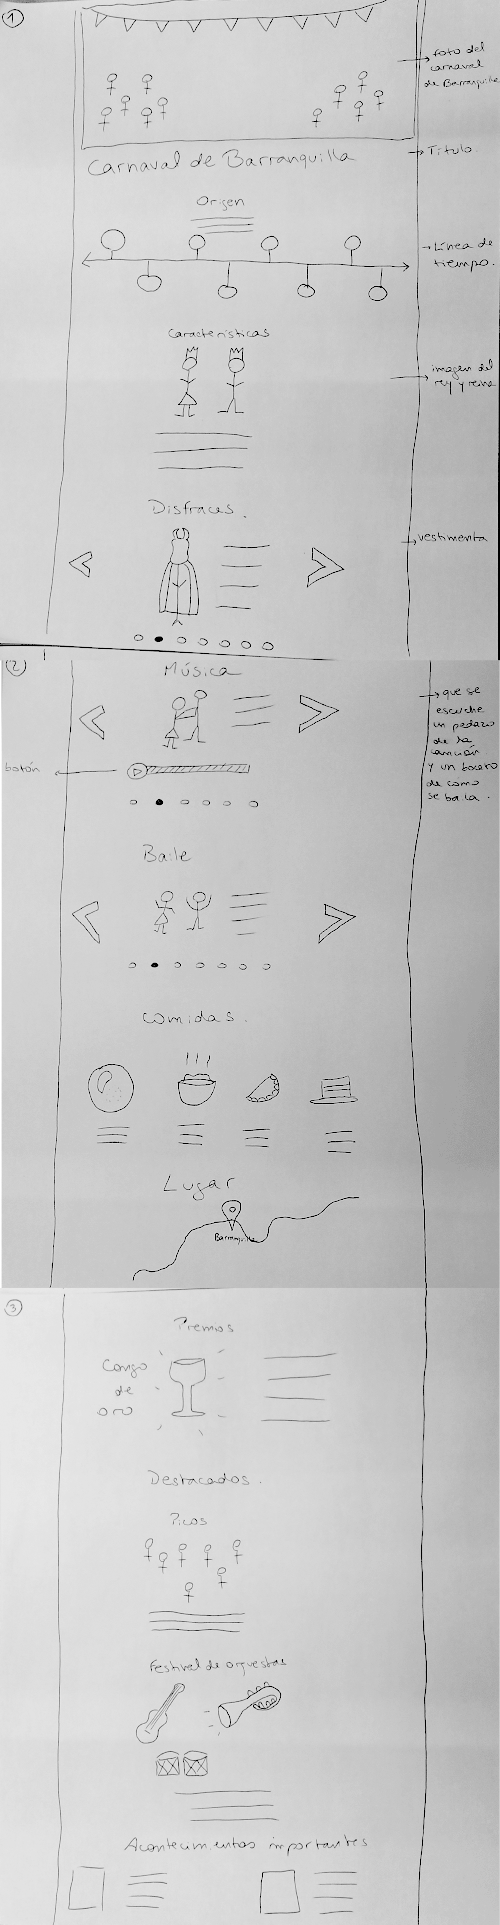 1
foto del
carnaval
de Barranquilla
Carnaval de Barranquilla
Titulo.
Origen
Línea de
tiempo.
Caracteristicas
imagen del
rey y reina
Disfraces.
vestimenta
2
Música
que se
escuche
un pedazo
de la
canción
y un boceto
de como
se baila.
botón
Baile
Comidas.
Lugar
Barranquilla
3
Premios
Congo
de
oro
Destacados.
Picos
Festival de orquestas
Acontecimientos importantes